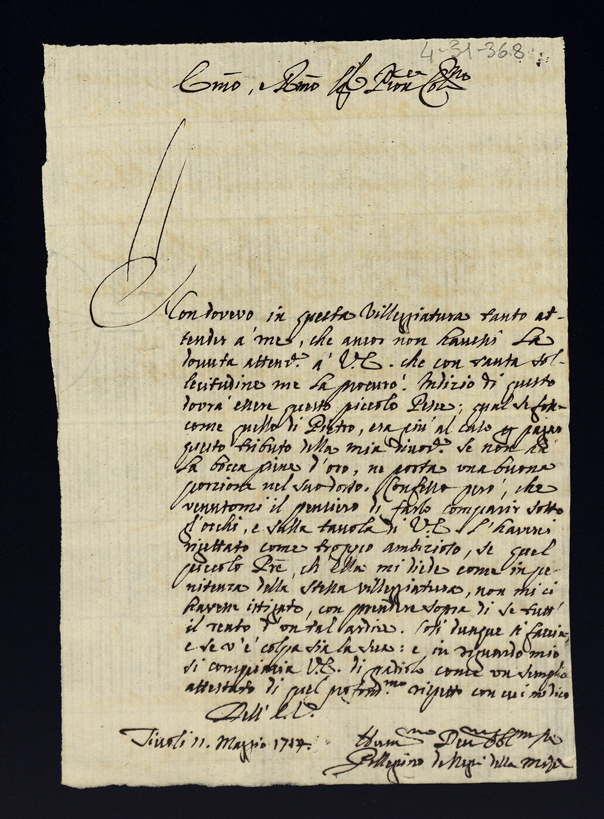 4-31-368
Non dovevo in questa Villeggiatura tanto at-
tender à me, che ancor non havessi la
dovuta attenz.e à V.E. che con tanta sol-
lecitudine me la procurò. Indizio di questo
dovrà essere questo piccolo Pesce; qual se fosse
come quello di Pietro, era più al caso p pagar
questo tributo della mia divoz.e Se non hà
la bocca piena d'oro, ne porta una buona
porzione nel suo dorso. Confesso però, che
venutomi il pensiero di farlo comparir sotto
gl'occhi, e sulla tavola di V.E. l'haverei
rigettato come troppo ambizioso, se quel
piccolo Pre, ch'Ella mi diede come in pe-
nitenza della stessa villeggiatura, non mi ci
havesse istigato, con prendere sopra di se tutt'
il reato d'un tal ardire. Così dunque si faccia,
e se v'è colpa sia la sua: e in riguardo mio
si compiaccia V.E. di gradirlo come un semplice
attestato di quel profond.mo rispetto con cui mi dico
Dell' E.V.
Tivoli 11. Maggio
Pellegrino de Negri della